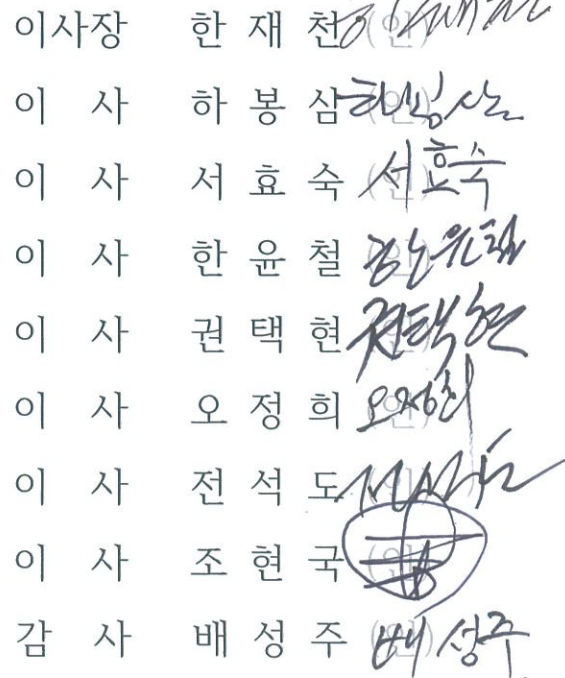 이사장 한 재 천 (인)
이 사 하 봉 삼 (인) 하봉삼
이 사 서 효 숙 (인) 서효숙
이 사 한 윤 철 (인) 한윤철
이 사 권 택 현 (인) 권택현
이 사 오 정 희 (인) 오정희
이 사 전 석 도 (인)
이 사 조 현 국 (인)
감 사 배 성 주 (인) 배성주